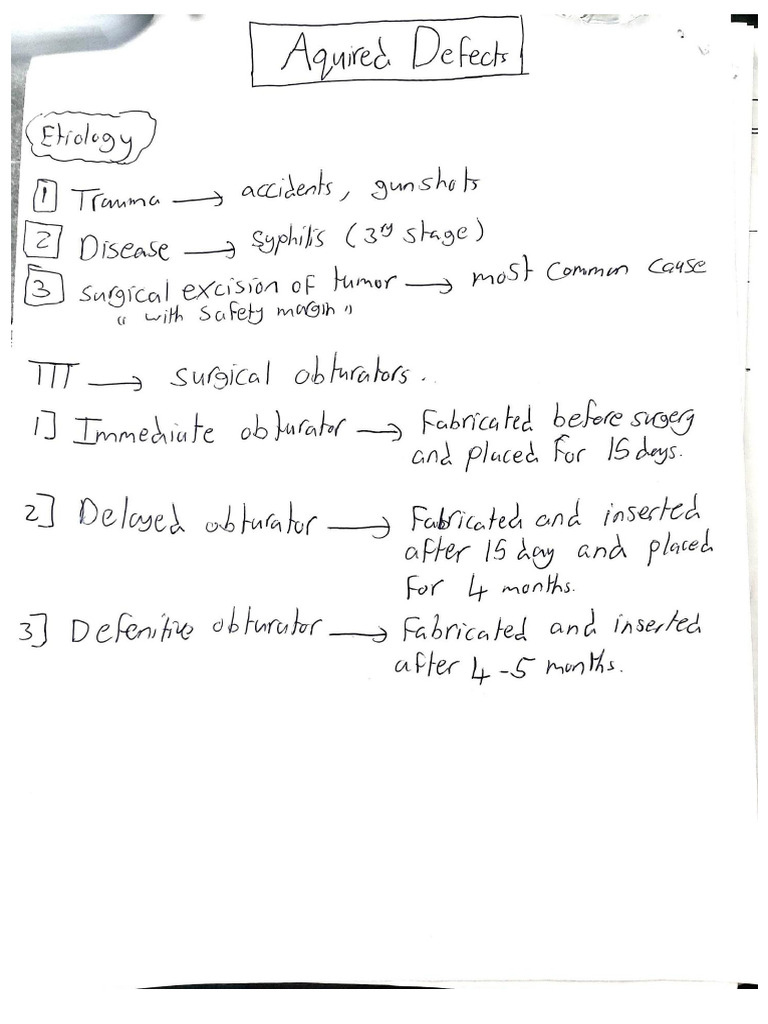 Aquired Defects
Etiology
1 Trauma → accidents, gunshots
2 Disease → Syphilis (3ry stage)
3 Surgical excision of tumor → most common cause
"with safety margin"
TTT → surgical obturators..
1] Immediate obturator → Fabricated before surgery
and placed for 15 days.
2] Delayed obturator → Fabricated and inserted
after 15 day and placed
for 4 months.
3] Defenitive obturator → Fabricated and inserted
after 4-5 months.